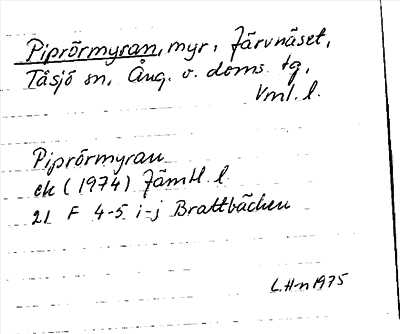 Piprörmyran, myr, Järvnäset,
Tåsjö sn, Ång. v. doms. tg,
Vnl. l.
Piprörmyran
ek (1974) Jämtl. l
21 F 4-5 i-j Brattbäcken
L.H-n 1975